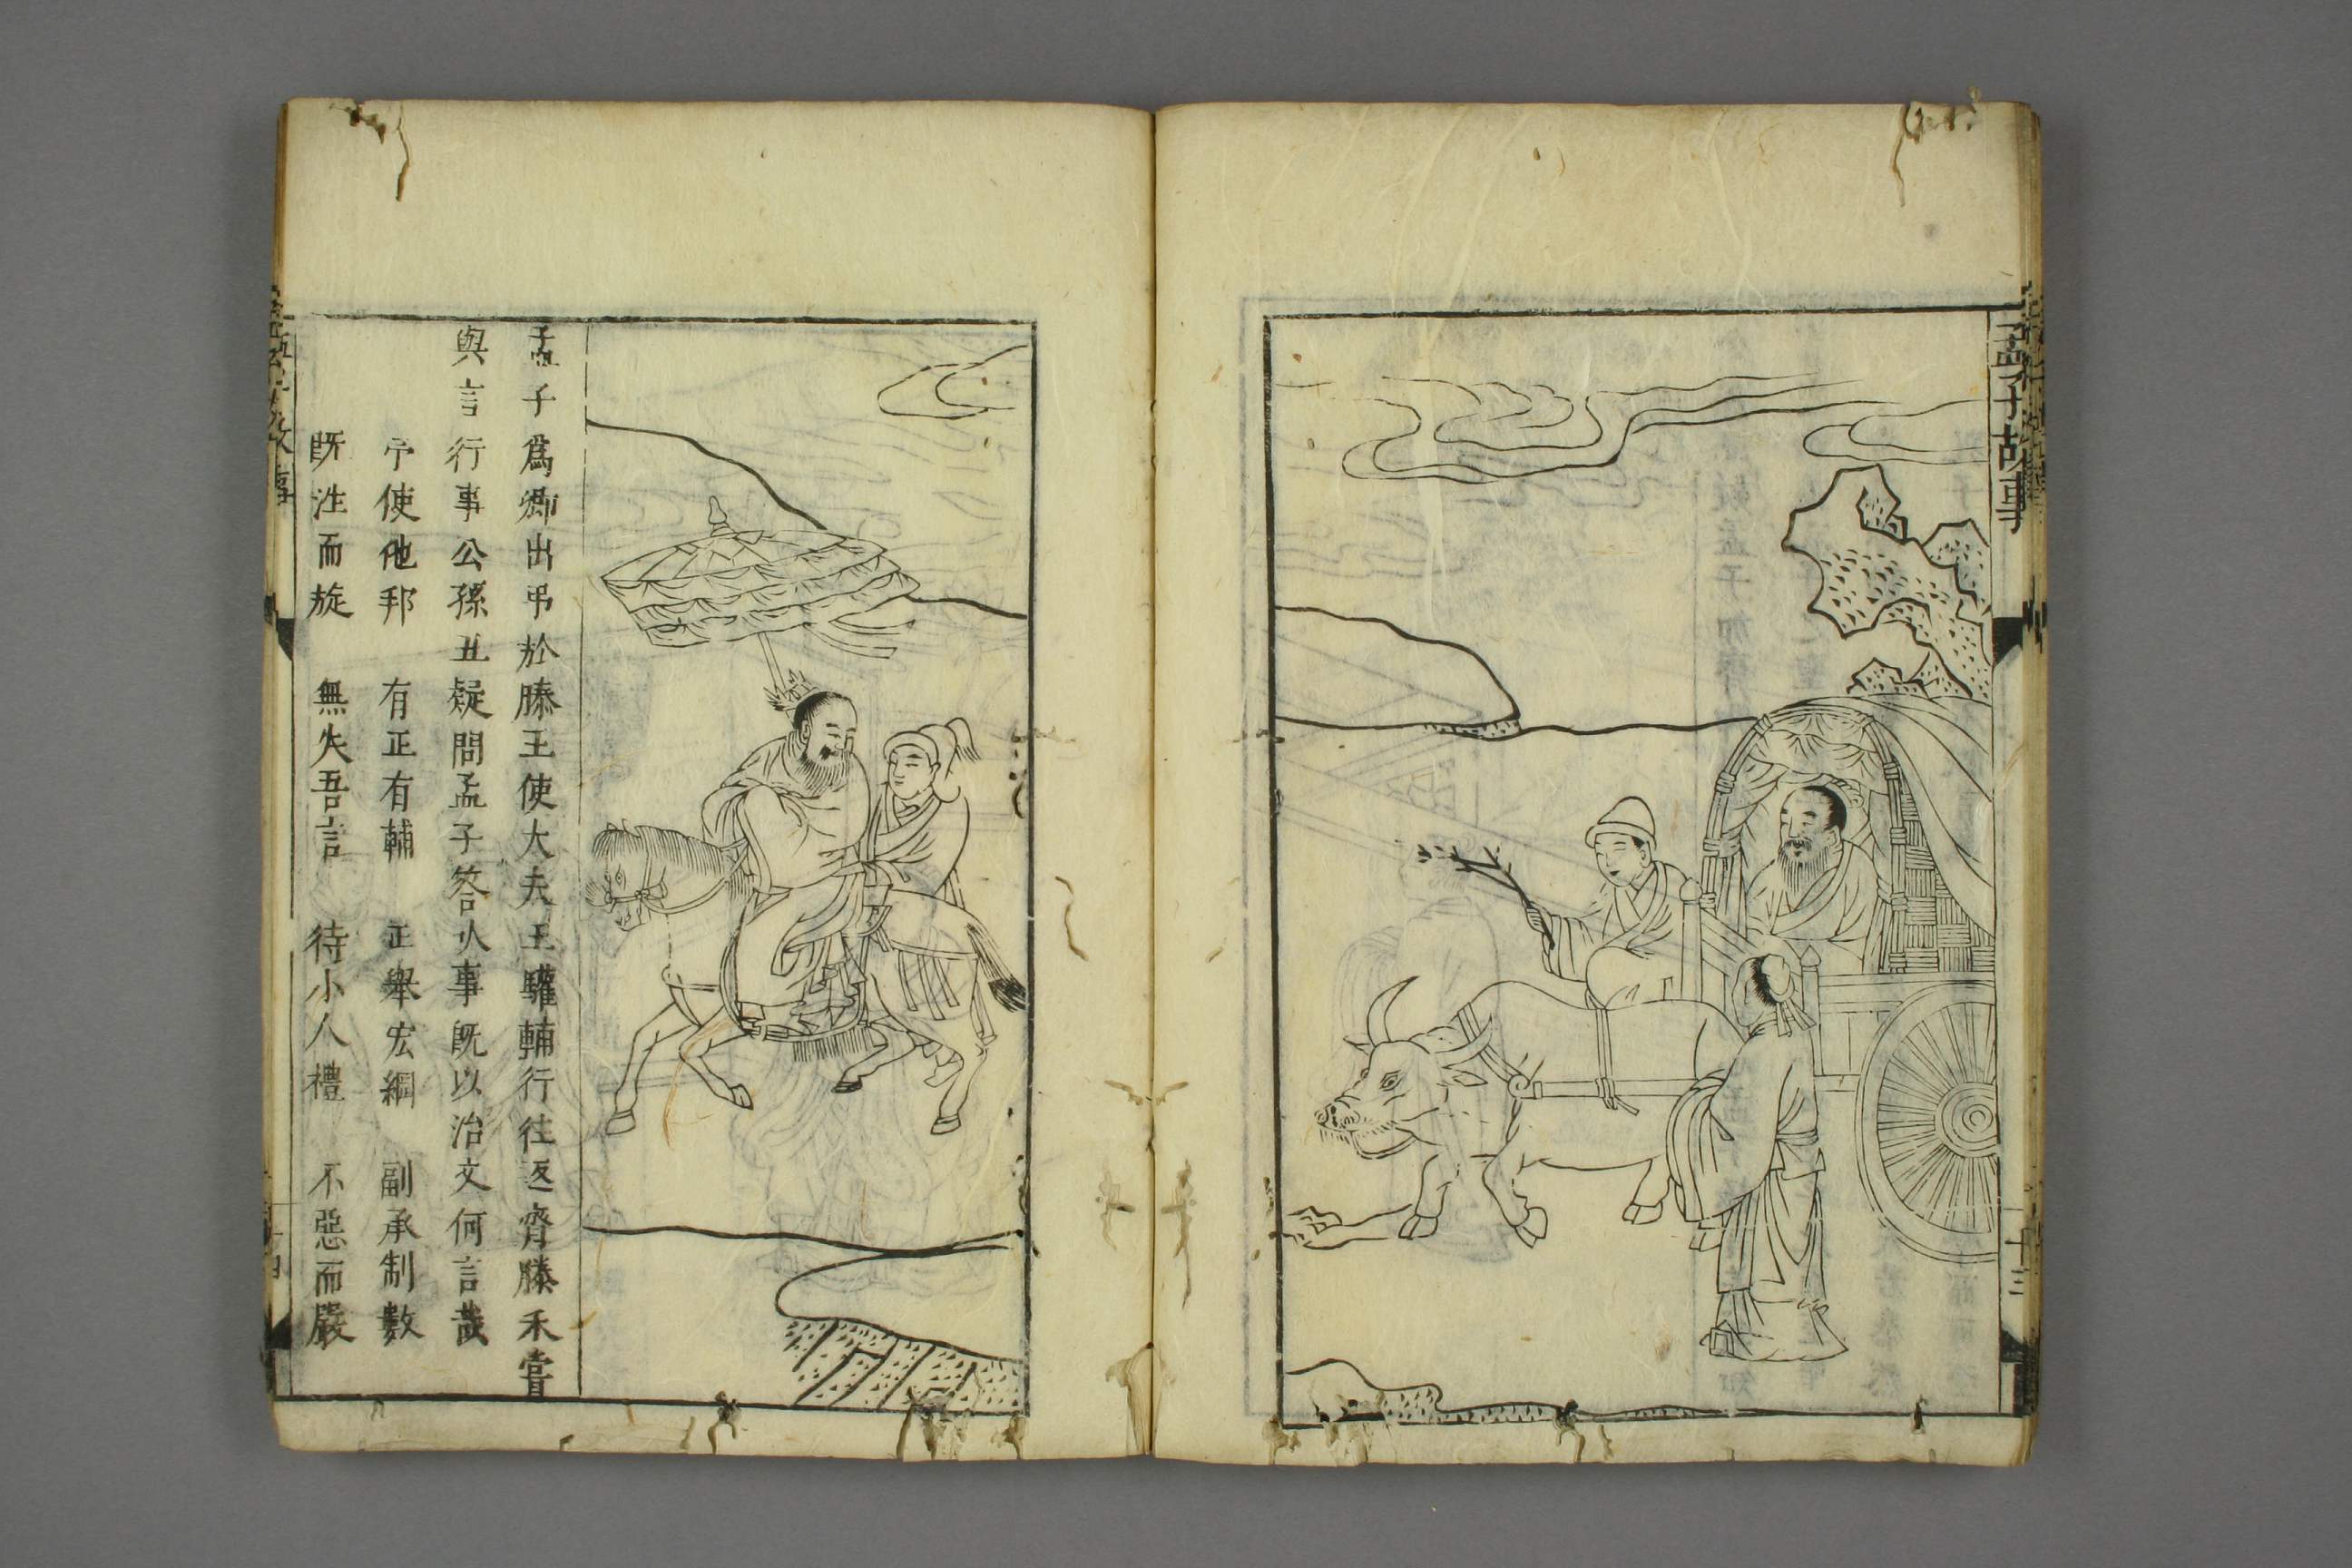 孟子故事
十三
孟子爲卿出弔於滕王使大夫王驩輔行往返齊滕未嘗
與言行事公孫丑疑問孟子答人事既以治文何言哉
予使他邦　有正有輔　正舉宏綱　副承制數
既往而旋　無失吾言　待小人禮　不惡而嚴
孟子故事